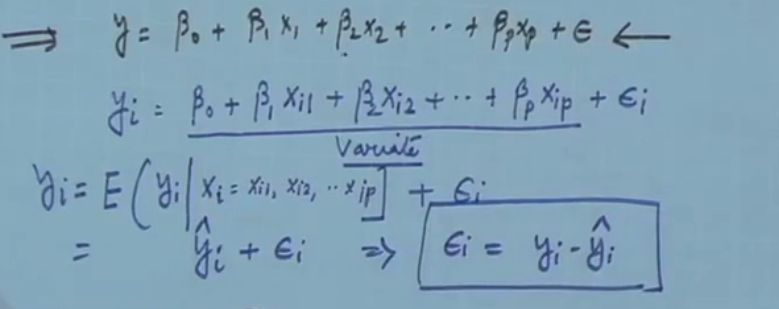 ⇒ y = β₀ + β₁ x₁ + β₂x₂ + ⋯ + βₚxₚ + ϵ ←
yᵢ = β₀ + β₁ xᵢ₁ + β₂xᵢ₂ + ⋯ + βₚ xᵢₚ + ϵᵢ
Variate
yᵢ = E ( yᵢ | xᵢ = xᵢ₁, xᵢ₂, ⋯ xᵢₚ ] + ϵᵢ
= ŷᵢ + ϵᵢ ⇒ ϵᵢ = yᵢ - ŷᵢ